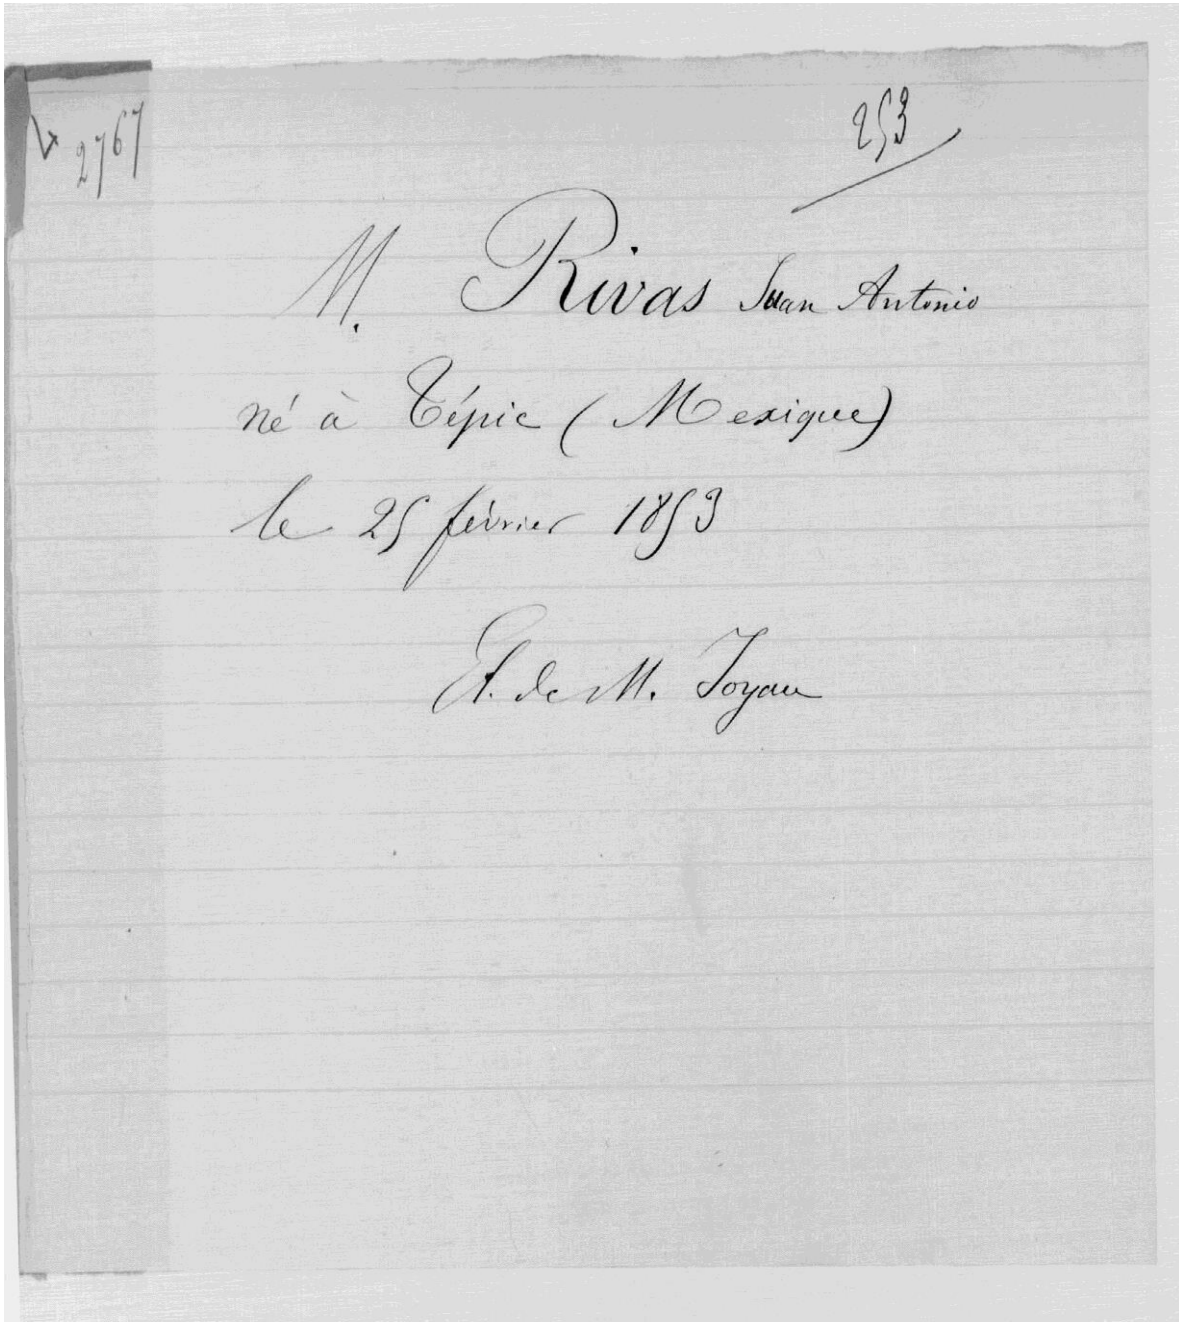 2767
253
M. Rivas Juan Antonio
né à Tépic (Mexique)
le 25 février 1853
El. de M. Joyau